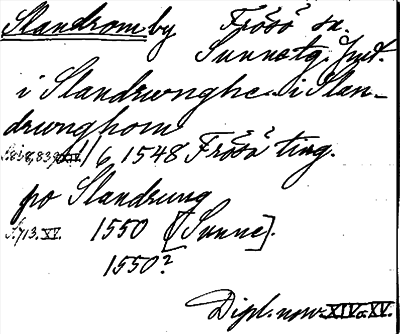 Slandrom by Frösö sn.
Sunne tg. Jmt.
i Slandrwnghe. i Slan-
drwnghom
6/6 1548 Frösö ting.
po Slandrung
S.713. XV. 1550 [Sunne].
1550?
Dipl. now. XIV o. XV.